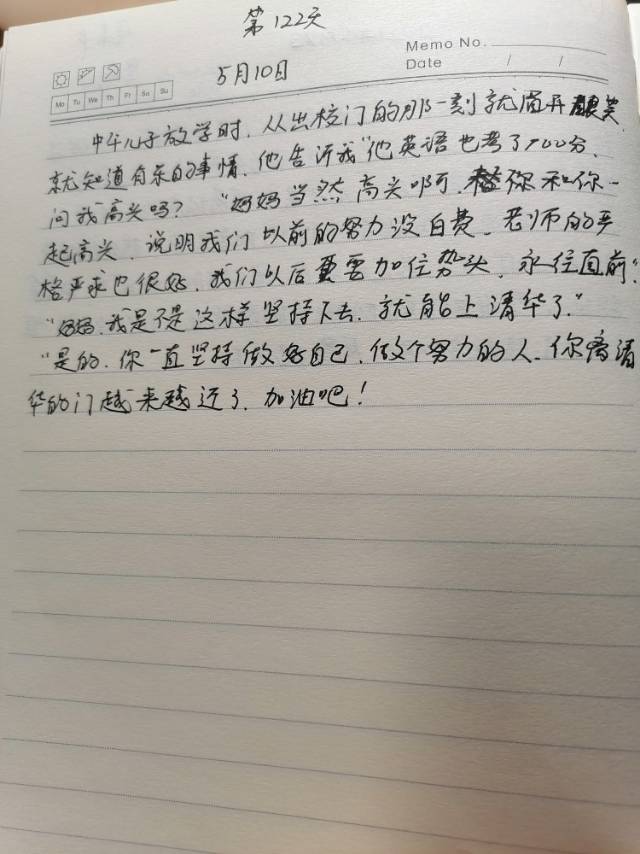 第122天
Memo No.
Date / /
5月10日
Mo Tu We Th Fr Sa Su
儿子放学时,从出校门的那一刻就眉开眼笑,
就知道有乐的事情,他告诉我"他英语也考了100分,
问我高兴吗?"妈妈当然高兴啊,替你和你一
起高兴,说明我们以前的努力没白费,老师的严
格严求也很好,我们以后要加住势头,永往直前"。
"妈妈,我是不是这样坚持下去,就能上清华了。"
"是的,你一直坚持做好自己,做个努力的人,你离清
华的门越来越近了,加油吧!